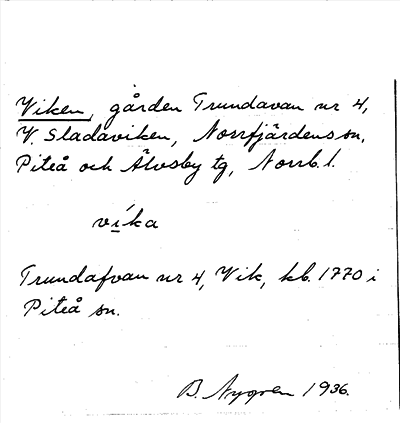 Viken, gården Trundavan nr 4,
V. Sladaviken, Norrfjärdens sn,
Piteå och Älvsby tg, Norrb. l.
víka
Trundafvan nr 4, Vik, kb. 1770 i
Piteå sn.
B. Nygren 1936.